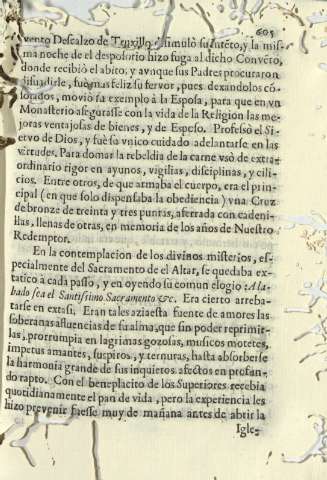 605
vento Descalzo de Truxillo dissimulò su intẽto, y la mis-
ma noche de el desposorio hizo fuga al dicho Convẽto,
donde recibiò el abito, y aunque sus Padres procuraron
disuadirle, fue mas feliz su fervor, pues dexandolos cõ-
solados, moviò su exemplo à la Esposa, para que en vn
Monasterio asegurasse con la vida de la Religion las me-
joras ventajosas de bienes, y de Esposo. Professò el Si-
ervo de Dios, y fuè su vnico cuidado adelantarse en las
virtudes. Para domar la rebeldia de la carne vsò de extra-
ordinario rigor en ayunos, vigilias, disciplinas, y cili-
cios. Entre otros, de que armaba el cuerpo, era el prin-
cipal (en que solo dispensaba la obediencia) vna Cruz
de bronze de treinta y tres puntas, aferrada con cadeni-
llas, llenas de otras, en memoria de los años de Nuestro
Redemptor.
En la contemplacion de los divinos misterios, es-
pecialmente del Sacramento de el Altar, se quedaba ex-
tatico à cada passo, y en oyendo su comun elogio: Ala-
bado sea el Santissimo Sacramento &c. Era cierto arreba-
tarse en extasi. Eran tales azia esta fuente de amores las
soberanas afluencias de su alma, que sin poder reprimir-
las, prorrumpia en lagrimas gozosas, musicos motetes,
impetus amantes, suspiros, y ternuras, hasta absorberse
la harmonia grande de sus inquietos afectos en profun-
do rapto. Con el beneplacito de los Superiores recebia
quotidianamente el pan de vida, pero la experiencia les
hizo prevenir fuesse muy de mañana antes de abrir la
Igle-